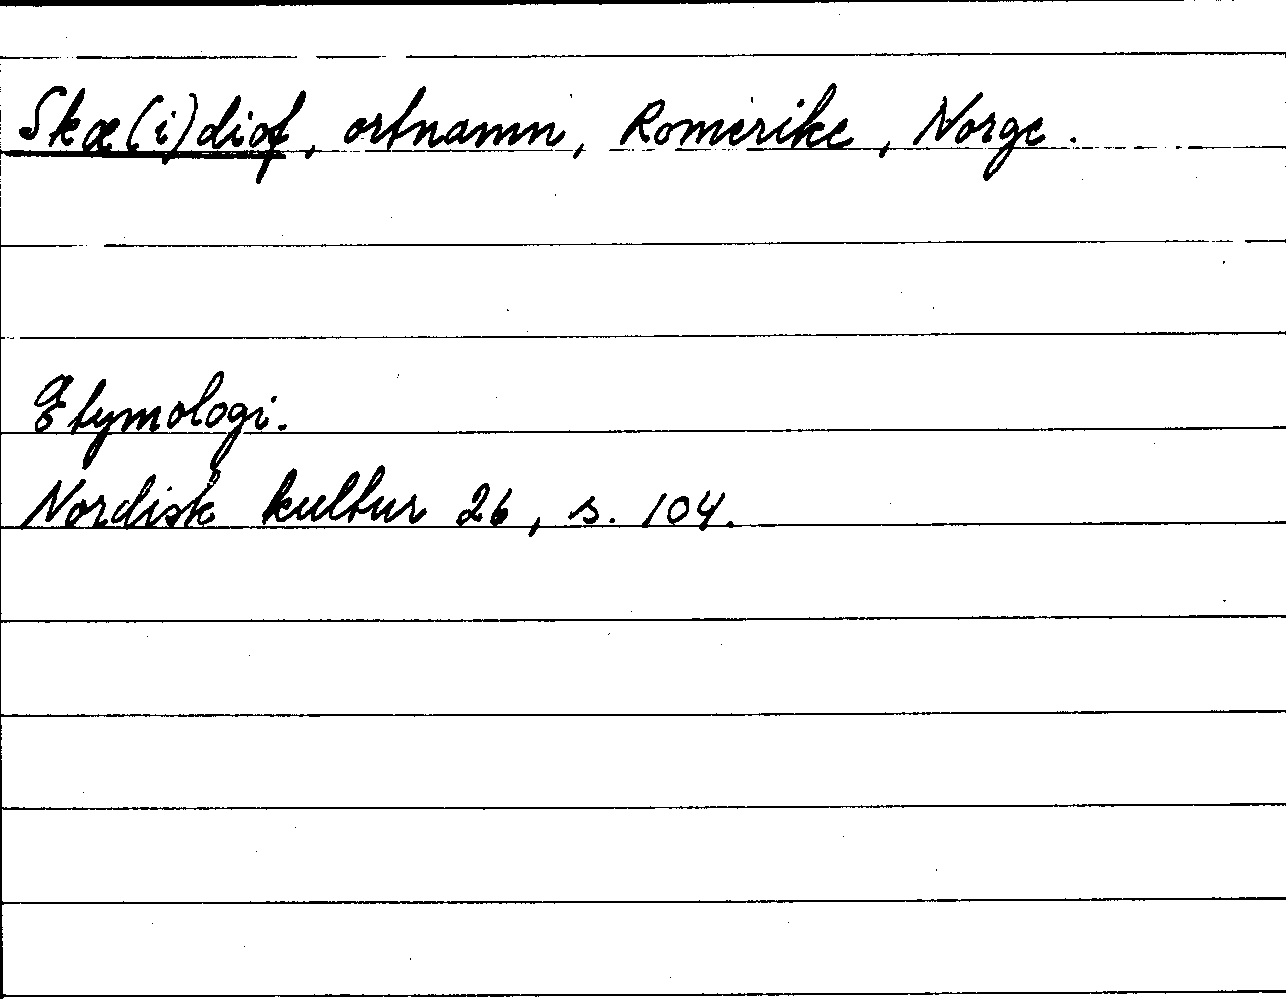 Skæ(i)diof, ortnamn, Romerike, Norge.
Etymologi.
Nordisk kultur 26, s. 104.